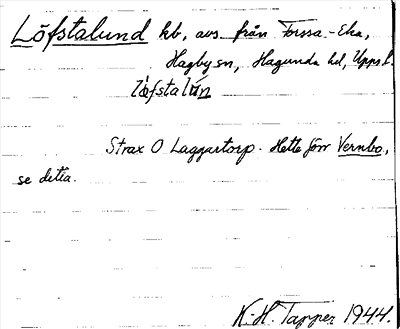 Löfstalund kb, avs. från Forssa-Eka,
Hagby sn, Hagunda hd, Upps. l.
Strax O Laggartorp. Hette förr Vernbo,
se detta.
K.-H. Tapper 1944.